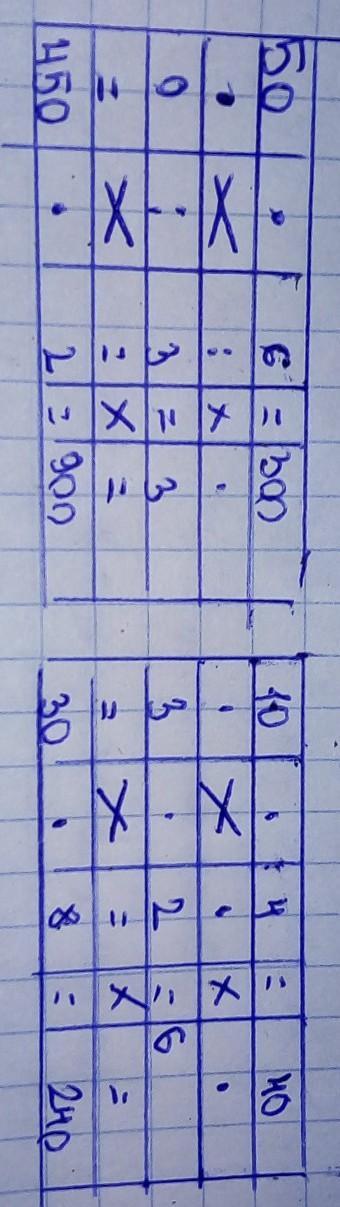 50 · 6 = 300
· X : x ·
9 : 3 = 3
= X = X =
450 · 2 = 900
10 · 4 = 40
· X · x ·
3 · 2 = 6
= X = X =
30 · 8 = 240